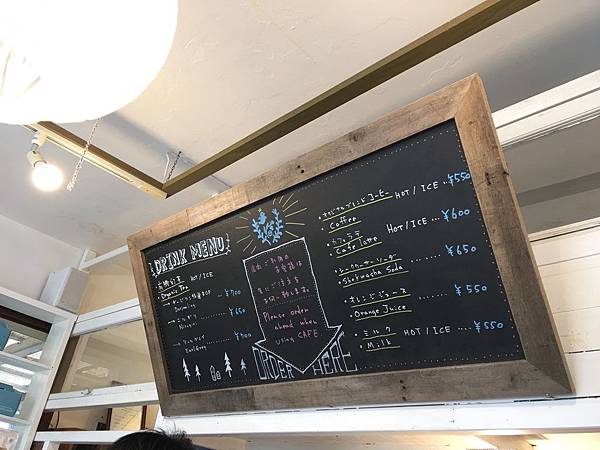 DRINK MENU
有機紅茶 HOT / ICE
Organic Tea
¥700
Darjeeling
¥650
¥700
Earl Grey
Please order
ahead when
using CAFE
ORDER HERE
オリジナルブレンドコーヒー HOT / ICE … ¥550
Coffee
カフェラテ HOT / ICE … ¥600
Cafe Latte
シークワーサーソーダ … ¥650
Shekwacha Soda
オレンジジュース … ¥550
Orange Juice
ミルク HOT / ICE … ¥550
Milk